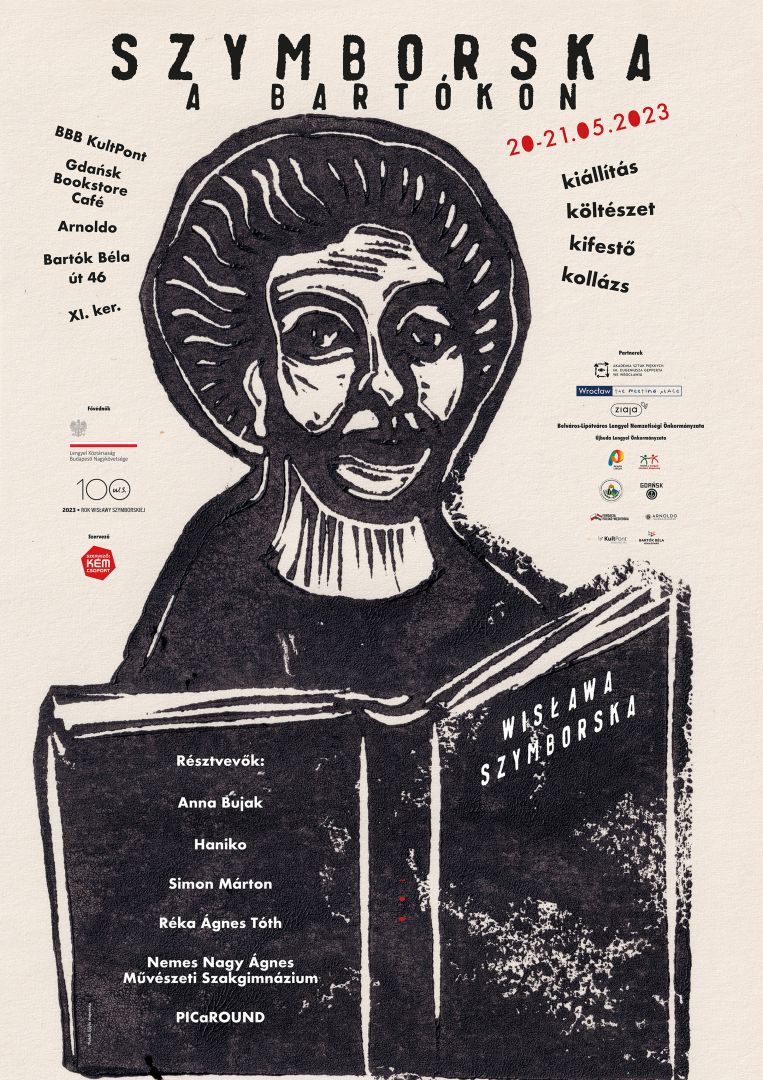 SZYMBORSKA
A BARTÓKON
20-21.05.2023
BBB KultPont
Gdańsk
Bookstore
Café
Arnoldo
Bartók Béla
út 46
XI. ker.
kiállítás
költészet
kifestő
kollázs
Fővédnök
Lengyel Köztársaság
Budapesti Nagykövetsége
100
2023 • ROK WISŁAWY SZYMBORSKIEJ
Szervező
SZERVEZŐ:
KÉM
CSOPORT
Partnerek
AKADEMIA SZTUK PIĘKNYCH
IM. EUGENIUSZA GEPPERTA
WE WROCŁAWIU
Wrocław the meeting place
ziaja
Belváros-Lipótváros Lengyel Nemzetiségi Önkormányzata
Újbuda Lengyel Önkormányzata
GDAŃSK
ARNOLDO
KultPont
BARTÓK BÉLA
WISŁAWA
SZYMBORSKA
Résztvevők:
Anna Bujak
Haniko
Simon Márton
Réka Ágnes Tóth
Nemes Nagy Ágnes
Művészeti Szakgimnázium
PICaROUND